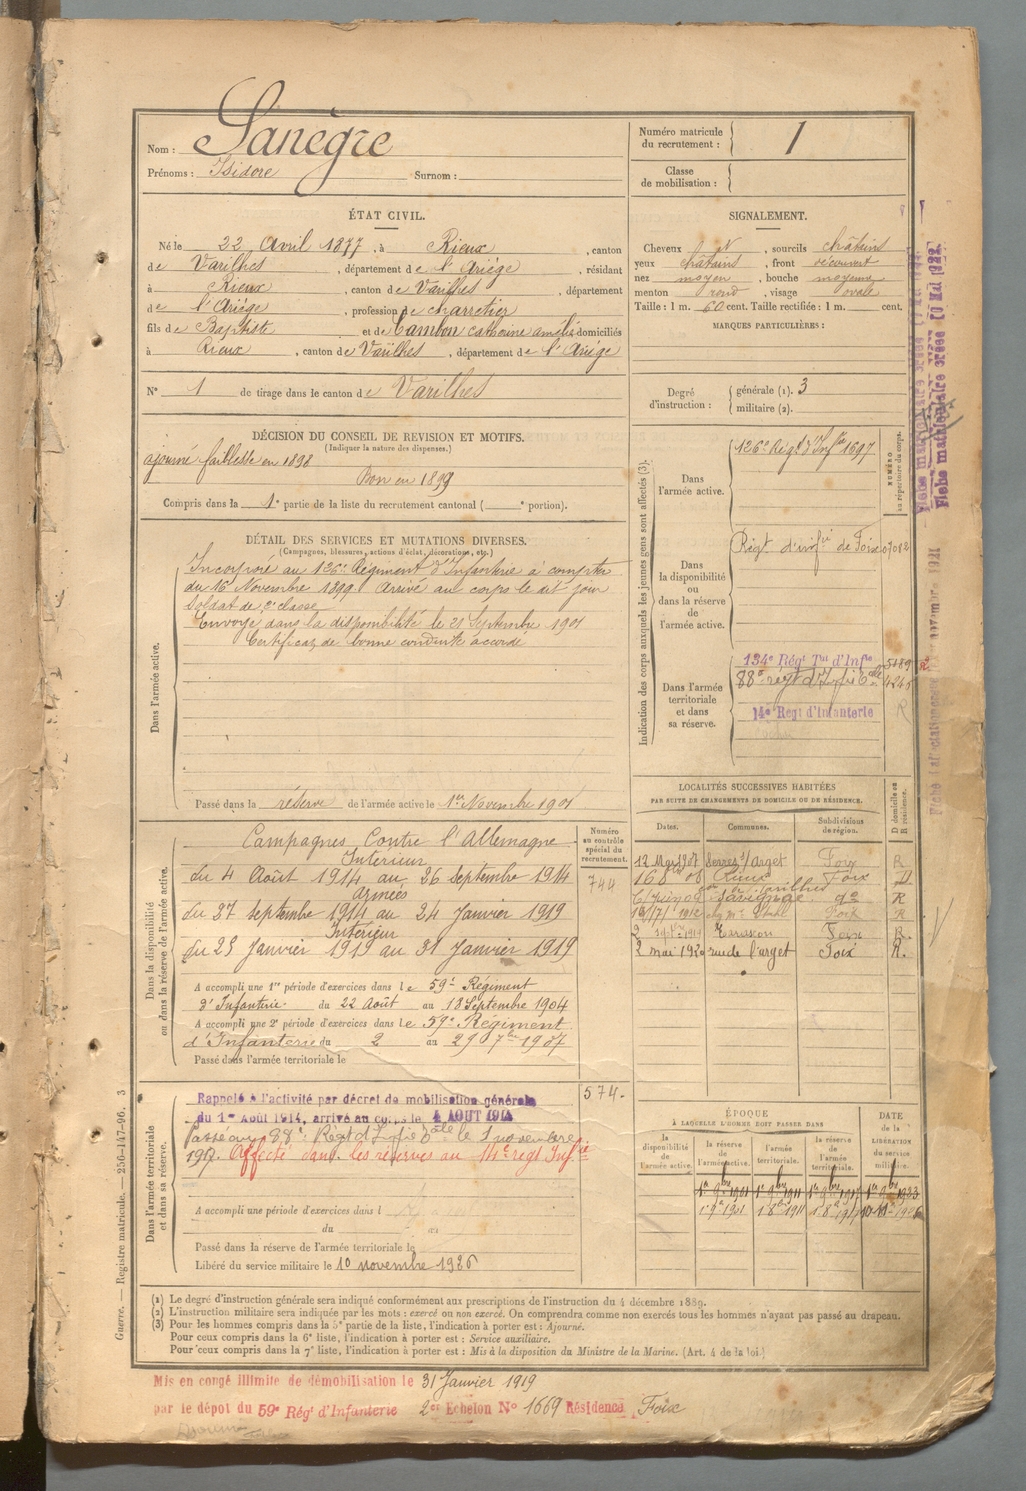 Nom : Sanègre
Prénoms : Isidore Surnom :
Numéro matricule du recrutement : 1
Classe de mobilisation :
ÉTAT CIVIL.
Né le 22 Avril 1877, à Rieux, canton
de Varilhes, département de l'Ariège, résidant
à Rieux, canton de Varilhes, département
de l'Ariège, profession de charretier
fils de Baptiste et de Cambon Catherine Amélie domiciliés
à Rieux, canton de Varilhes, département de l'Ariège
N° 1 de tirage dans le canton de Varilhes
SIGNALEMENT.
Cheveux N, sourcils châtains
yeux châtains, front découvert
nez moyen, bouche moyenne
menton rond, visage ovale
Taille : 1 m. 60 cent. Taille rectifiée : 1 m. cent.
MARQUES PARTICULIÈRES :
Degré d'instruction : générale (1). 3
militaire (2).
DÉCISION DU CONSEIL DE REVISION ET MOTIFS.
(Indiquer la nature des dispenses.)
ajourné faiblesse en 1898
Bon en 1899
Compris dans la 1e partie de la liste du recrutement cantonal ( e portion).
DÉTAIL DES SERVICES ET MUTATIONS DIVERSES.
(Campagnes, blessures, actions d'éclat, décorations, etc.)
Dans l'armée active.
Incorporé au 126e Régiment d'Infanterie à compter
du 16 Novembre 1899. Arrivé au corps le dit jour
Soldat de 2e classe
Envoyé dans la disponibilité le 21 Septembre 1901
Certificat de bonne conduite accordé
Passé dans la réserve de l'armée active le 1er Novembre 1901
Indication des corps auxquels les jeunes gens sont affectés (3).
NUMÉRO au répertoire du corps.
Dans l'armée active.
126e Régt d'Infie 1697
Dans la disponibilité ou dans la réserve de l'armée active.
Régt d'infie de Foix 07012
Dans l'armée territoriale et dans sa réserve.
134e Régt Tal d'Infie 5189
88e régt d'Infie 6elle 4245
14e Régt d'Infanterie R
LOCALITÉS SUCCESSIVES HABITÉES
PAR SUITE DE CHANGEMENTS DE DOMICILE OU DE RÉSIDENCE.
Dates. Communes. Subdivisions de région. D domicile ou R résidence.
12 Mars 1907 Serres s/Arget Foix R
16 8 08 Rieux Foix D
6 Juin 09 Savignac do R
1912 Foix R
2 1914 Tarascon Foix R.
2 mai 1920 rue de l'arget Foix R.
Dans la disponibilité ou dans la réserve de l'armée active.
Numéro au contrôle spécial du recrutement.
744
Campagnes Contre l'Allemagne
Intérieur
du 4 Août 1914 au 26 septembre 1914
Armées
du 27 septembre 1914 au 24 Janvier 1919
Intérieur
du 25 Janvier 1919 au 31 Janvier 1919
A accompli une 1re période d'exercices dans le 59e Régiment
d'Infanterie du 22 Août au 18 Septembre 1904
A accompli une 2e période d'exercices dans le 59e Régiment
d'Infanterie du 2 au 29 7bre 1907
Passé dans l'armée territoriale le
Dans l'armée territoriale et dans sa réserve.
574.
Rappelé à l'activité par décret de mobilisation générale
du 1er Août 1914, arrivé au corps le 4 AOUT 1914
Passé au 88e Régt d'Infie 6elle le 1 novembre
1917. Affecté dans les réserves au 14e régt Infie
A accompli une période d'exercices dans l
du au
Passé dans la réserve de l'armée territoriale le
Libéré du service militaire le 10 novembre 1926
ÉPOQUE
À LAQUELLE L'HOMME DOIT PASSER DANS
la disponibilité de l'armée active. la réserve de l'armée active. l'armée territoriale. la réserve de l'armée territoriale.
DATE de la LIBÉRATION du service militaire.
1er 9bre 1901 1er 9bre 1911 1er 9bre 1917 1er 9bre 1923
(1) Le degré d'instruction générale sera indiqué conformément aux prescriptions de l'instruction du 4 décembre 1889.
(2) L'instruction militaire sera indiquée par les mots : exercé ou non exercé. On comprendra comme non exercés tous les hommes n'ayant pas passé au drapeau.
(3) Pour les hommes compris dans la 5e partie de la liste, l'indication à porter est : Ajourné.
Pour ceux compris dans la 6e liste, l'indication à porter est : Service auxiliaire.
Pour ceux compris dans la 7e liste, l'indication à porter est : Mis à la disposition du Ministre de la Marine. (Art. 4 de la loi.)
Mis en congé illimité de démobilisation le 31 Janvier 1919
par le dépôt du 59e Régt d'Infanterie 2er Echelon No 1669 Résidence Foix
Guerre. — Registre matricule. — 256-147-96. 3
Fiche matriculaire créée